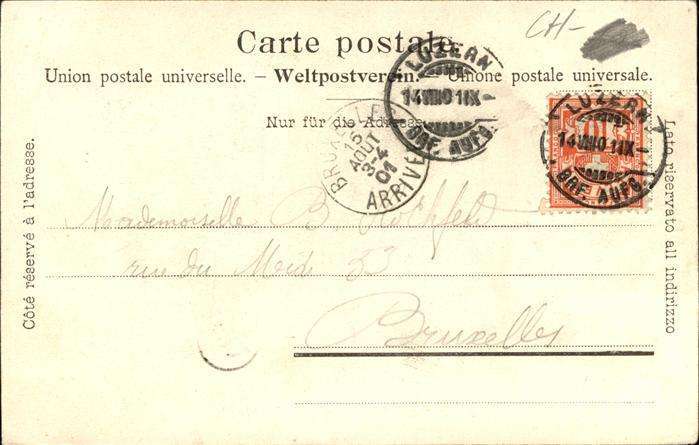 CH-
Carte postale.
Union postale universelle. – Weltpostverein. – Unione postale universale.
Nur für die Adresse.
Côté réservé à l'adresse.
Lato riservato all indirizzo
LUZERN
14 VIII 01 IX-
BRF. AUFG.
LUZERN
14 VIII 01 IX
BRF. AUFG.
BRUXELLES
15
AOUT
3-4
01
ARRIVE
10
Mademoiselle B.
rue du Midi 53
Bruxelles